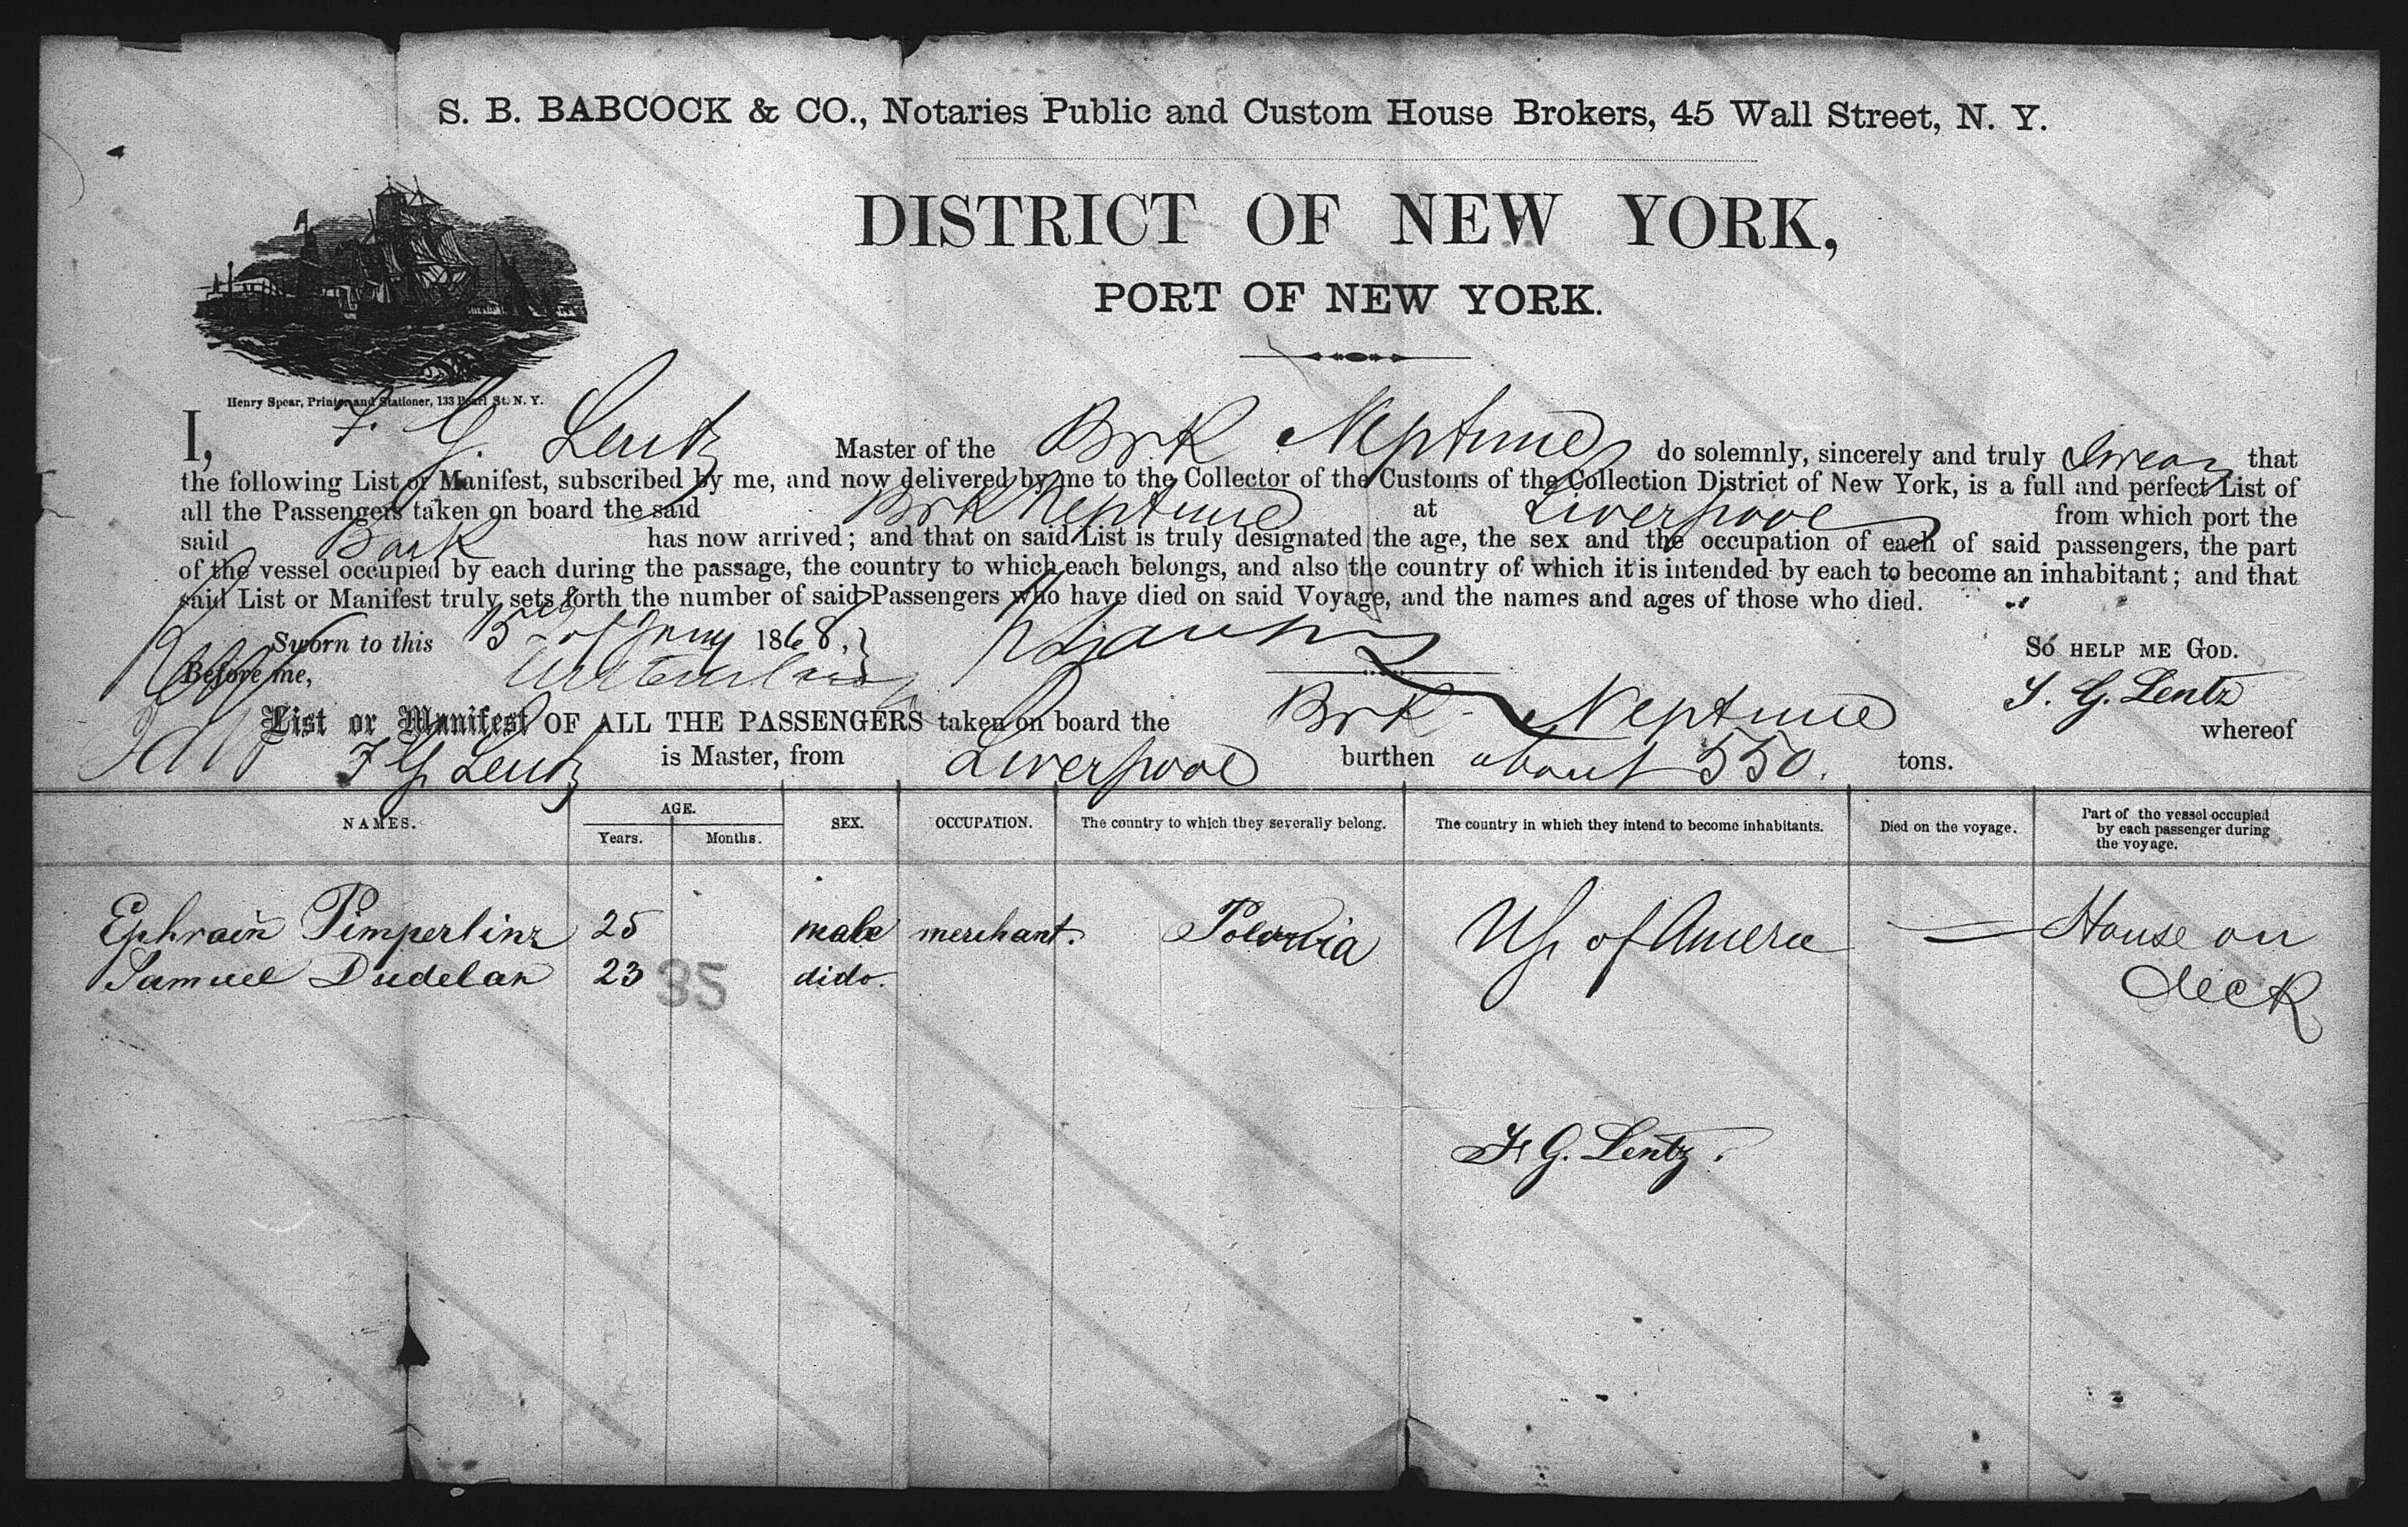 S. B. BABCOCK & CO., Notaries Public and Custom House Brokers, 45 Wall Street, N. Y.
DISTRICT OF NEW YORK,
PORT OF NEW YORK.
Henry Spear, Printer and Stationer, 133 Pearl St. N. Y.
I, F. G. Lentz Master of the Brk Neptune do solemnly, sincerely and truly swear that
the following List or Manifest, subscribed by me, and now delivered by me to the Collector of the Customs of the Collection District of New York, is a full and perfect List of
all the Passengers taken on board the said Brk Neptune at Liverpool from which port the
said Bark has now arrived; and that on said List is truly designated the age, the sex and the occupation of each of said passengers, the part
of the vessel occupied by each during the passage, the country to which each belongs, and also the country of which it is intended by each to become an inhabitant; and that
said List or Manifest truly sets forth the number of said Passengers who have died on said Voyage, and the names and ages of those who died.
Sworn to this 1868, SO HELP ME GOD.
Before me, F. G. Lentz
List or Manifest OF ALL THE PASSENGERS taken on board the Brk Neptune whereof
F G Lentz is Master, from Liverpool burthen about 550. tons.
NAMES. AGE. Years. Months. SEX. OCCUPATION. The country to which they severally belong. The country in which they intend to become inhabitants. Died on the voyage. Part of the vessel occupied by each passenger during the voyage.
Ephraim Pimperlinz 25 male merchant. US of America — House on
Samuel Dudelak 23 35 dido. deck
F. G. Lentz.